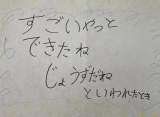 すごいやっと
できたね
じょうずだね
といわれたとき